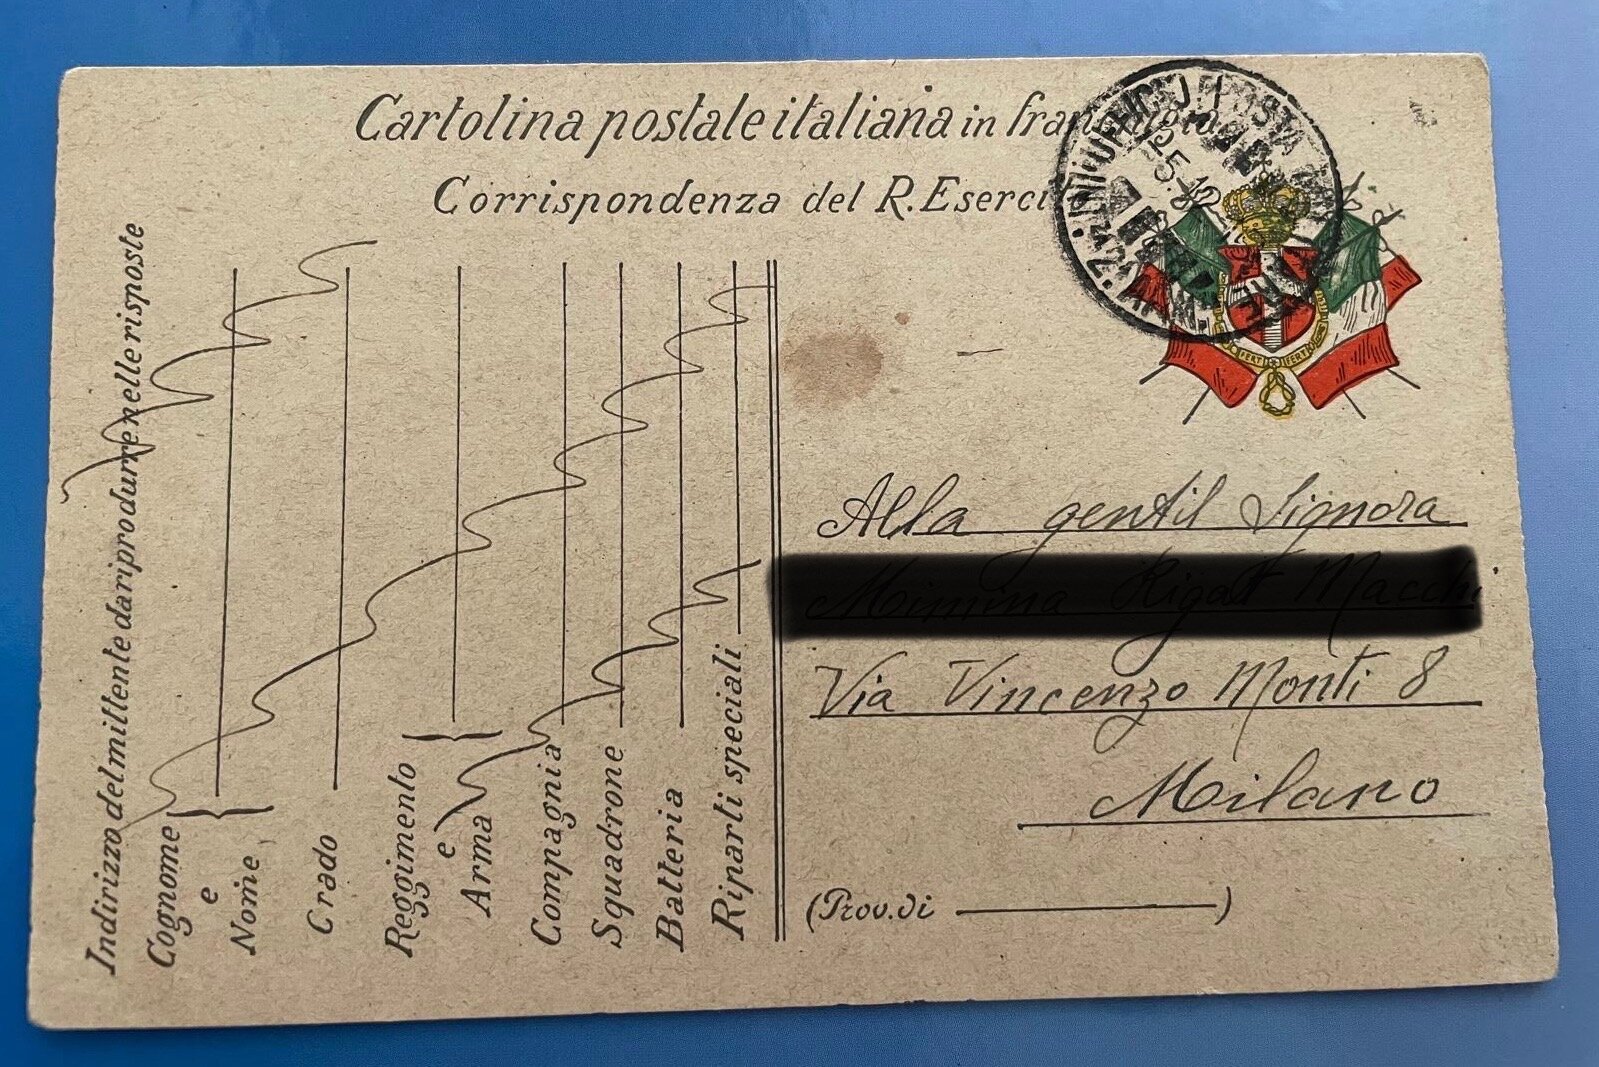 Cartolina postale italiana in franchigia
Corrispondenza del R. Esercito
Indirizzo del mittente da riprodurre nelle risposte
Cognome
e
Nome
Grado
Reggimento
e
Arma
Compagnia
Squadrone
Batteria
Riparti speciali
FERT FERT
Alla gentil Signora
Via Vincenzo Monti 8
Milano
(Prov. di )